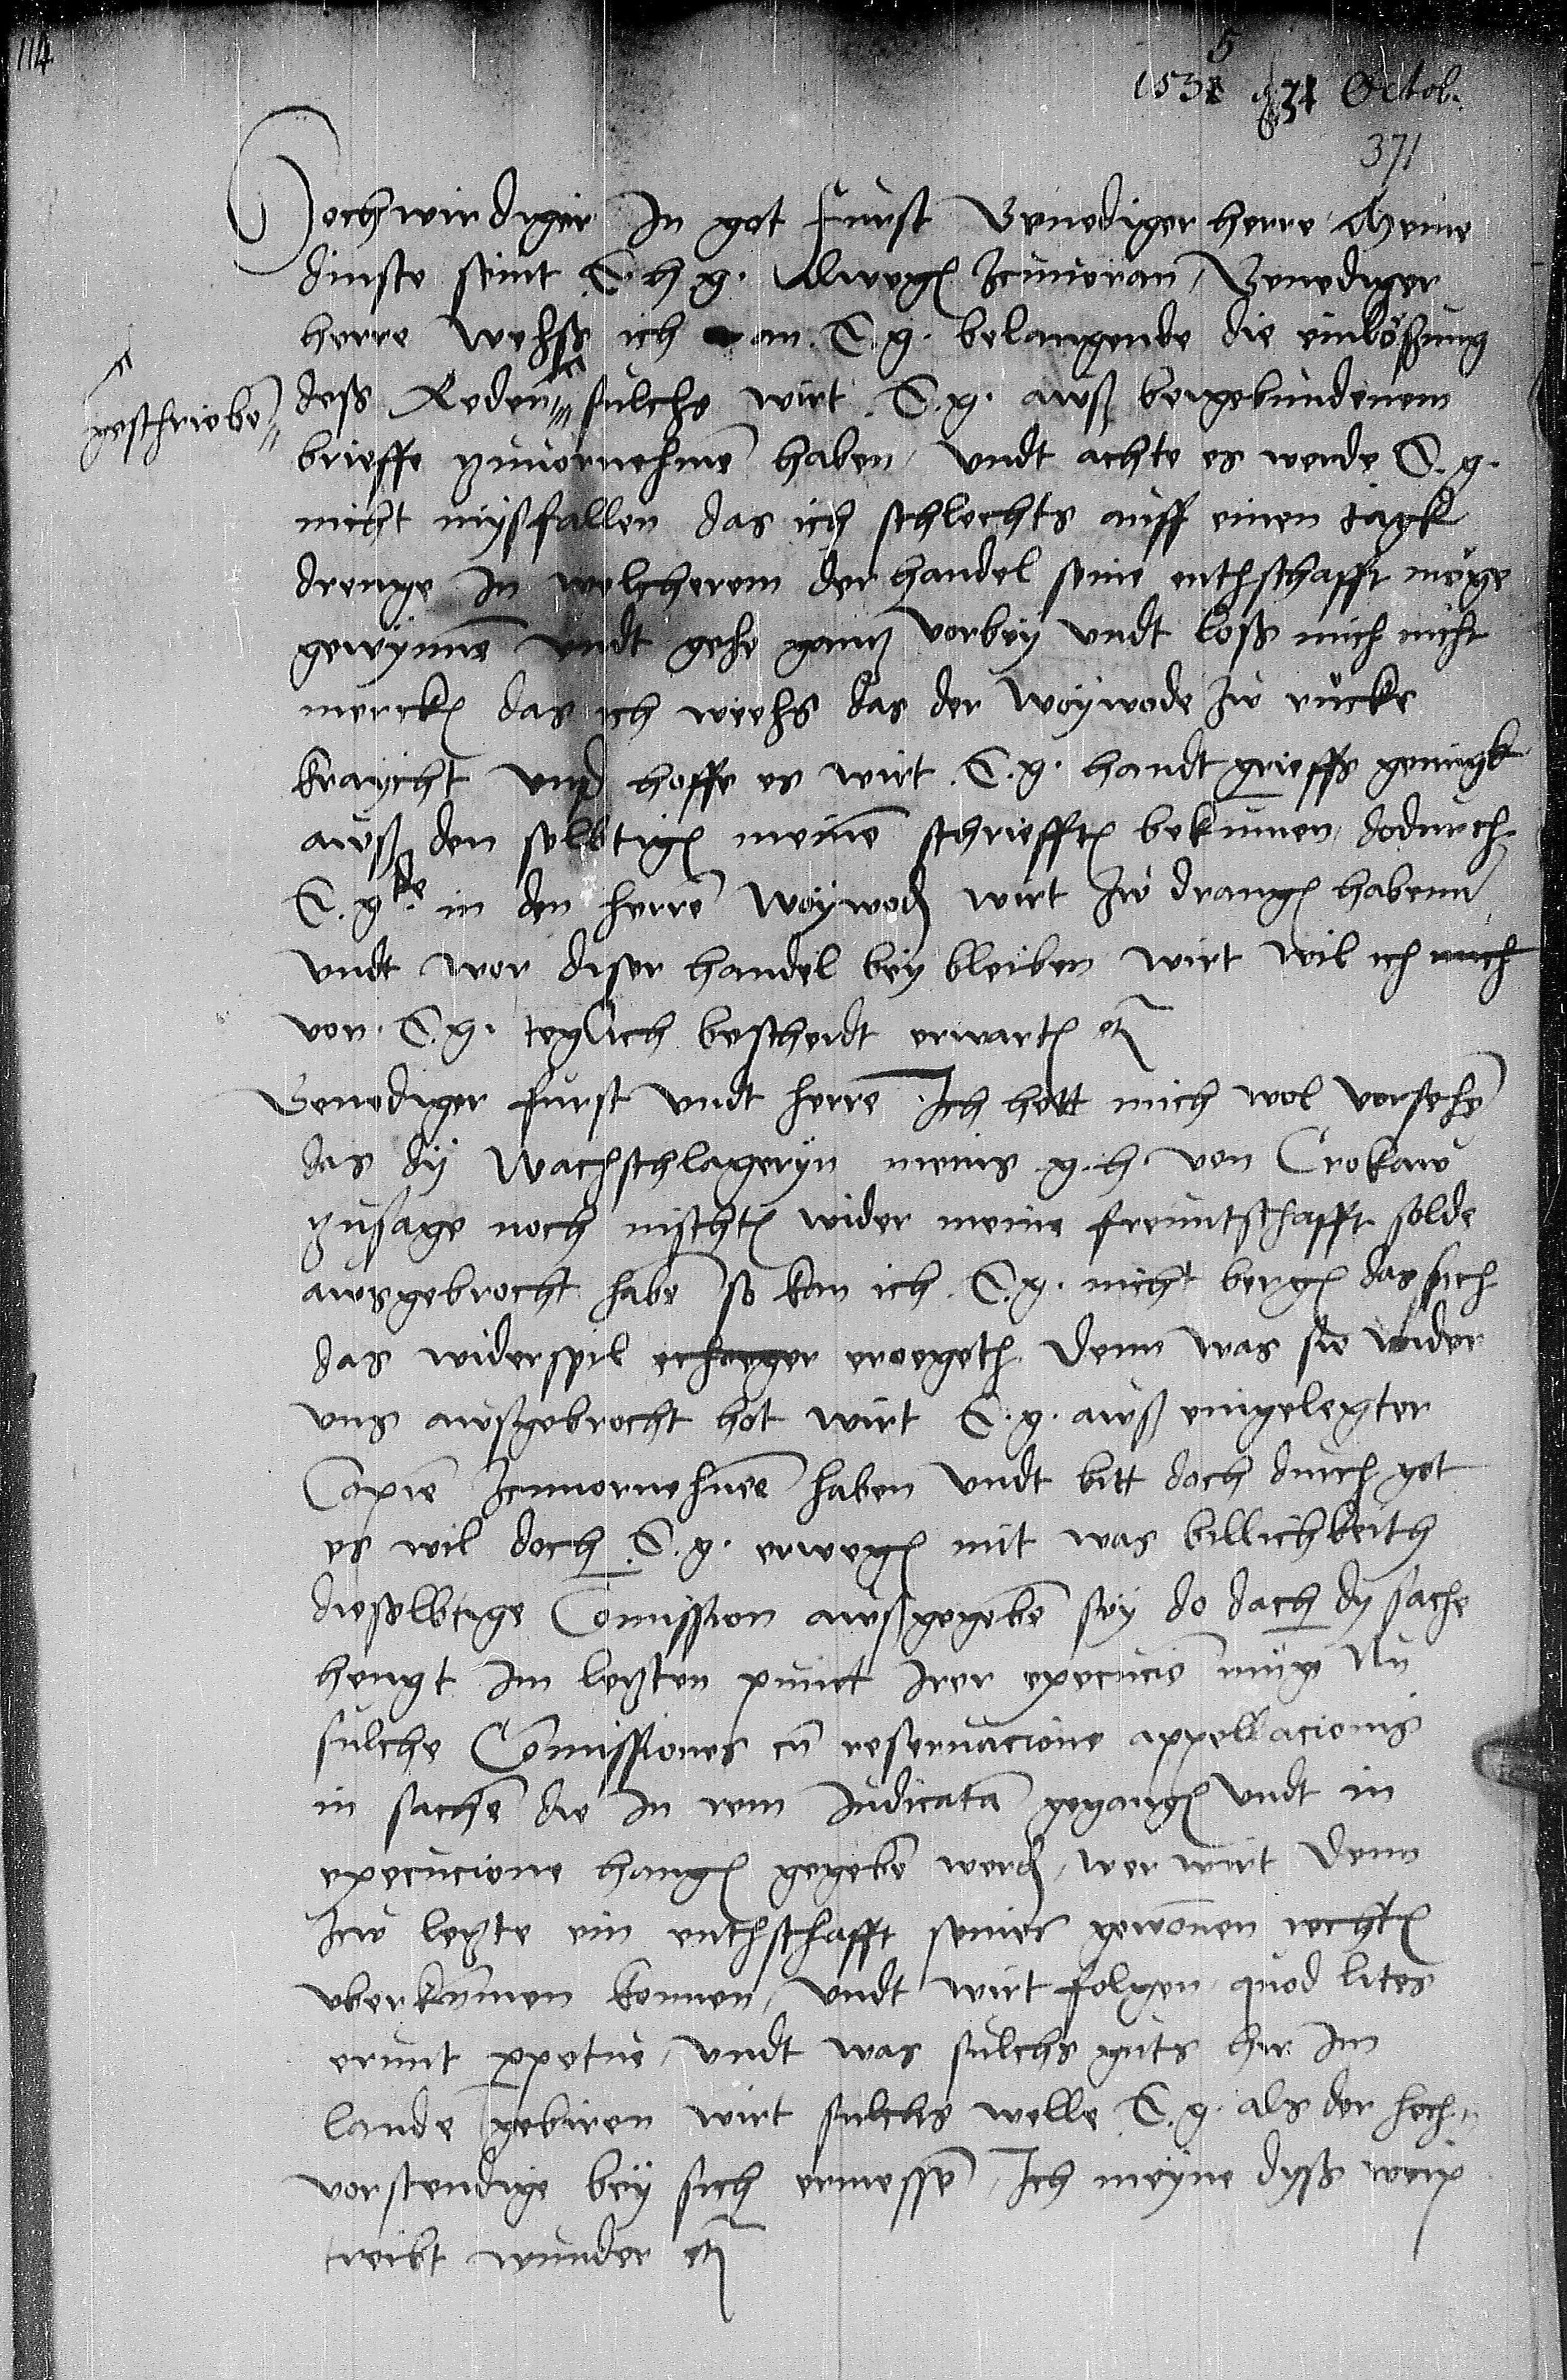 114
5
1531 31 Octob.
371
Hochwirdiger In got furst Genediger herre Meine
dinste seint E. h. g. Alwegen Zcuuoran Genediger
herre Wehsß ich an E. g. belangende die einlößung
geschriebe deß Reden sulchs wirt E. g. auß beygebundenem
brieffe zcuuornehme haben, vndt achte es werde E. g.
nicht mysfallen das ich schlechts auff einen tagk
drenge In welcherem der handel seine enthschafft möge
gewynne vndt gehe gantz vorbey vndt loß mich nicht
mercken das ich weehs das der Woywode Zw rücke
kraycht vnd hoffe es wirt E. g. handt grieffs genugk
auß den selbtigen meine schriefften bekumen, dodurch
E. gde in den herre Woywoden wirt Zw drangen habenn
vndt wor diser handel bey bleiben wirt wil ich mich
von E. g. teglich bescheidt erwarten etc
Genediger furst vndt herre Ich hett mich wol vorsehe
das dy Wachschlageryn meins g. h. von Crokaw
zusage noch nischten wider meine freuntschafft solde
ausgebrocht habe so kan ich E. g. nicht bergen das sich
das widerspil eroegeth Denn was sie wider
vns außgebrocht hot wirt E. g. auß eingelegter
Copie Zcuuornehme haben vndt bitt doch durch got
es wil doch E. g. erwegen mit was billichkeith
dieselbtige Comission außgegebe sey do doch dy sache
hengt Im letzten punct Irer execucio müge Nu
sulche Comissiones cu reseruacione appellacionis
in sache die In rem Iudicata gegangen vndt in
execucione hangen gegebe werden, wer wirt denn
Zw letzte ein enthschafft seiner gewonen rechten
vberkumen konnen, vndt wirt folgen quod lites
erunt ppetue, vndt was sulchs guts hir Im
lande gebiren wirt sulchs welle E. g. als der hoch
vorstendige bey sich ermesse, Ich meyne dyß weip
treibt wunder etc